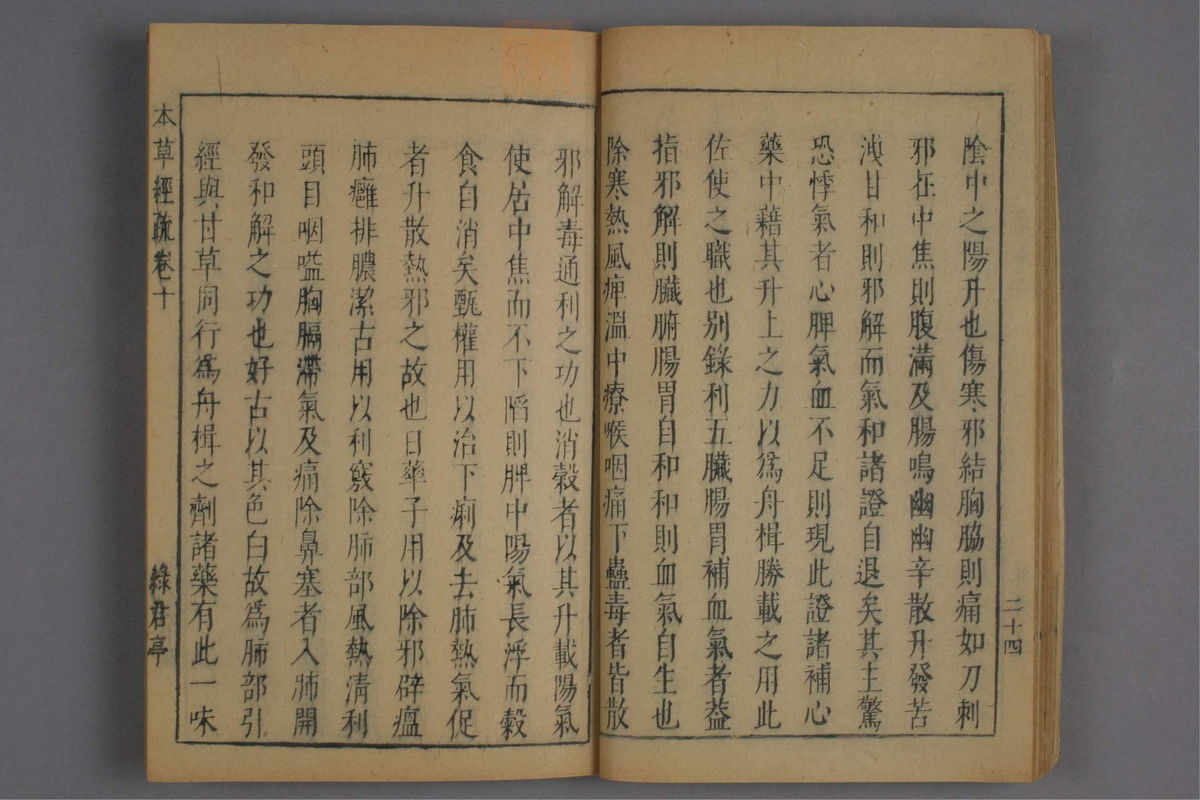 陰中之陽升也傷寒邪結胸脇則痛如刀刺
邪在中焦則腹滿及腸鳴幽幽辛散升發苦
洩甘和則邪解而氣和諸證自退矣其主驚
恐悸氣者心脾氣血不足則現此證諸補心
藥中藉其升上之力以爲舟楫勝載之用此
佐使之職也别錄利五臟腸胃補血氣者葢
指邪解則臟腑腸胃自和和則血氣自生也
除寒熱風痺溫中療喉咽痛下蠱毒者皆散
二十四
邪解毒通利之功也消穀者以其升載陽氣
使居中焦而不下陷則脾中陽氣長浮而穀
食自消矣甄權用以治下痢及去肺熱氣促
者升散熱邪之故也日華子用以除邪辟瘟
肺癰排膿潔古用以利竅除肺部風熱清利
頭目咽嗌胸膈滯氣及痛除鼻塞者入肺開
發和解之功也好古以其色白故爲肺部引
經與甘草同行爲舟楫之劑諸藥有此一味
本草經疏卷十
綠君亭